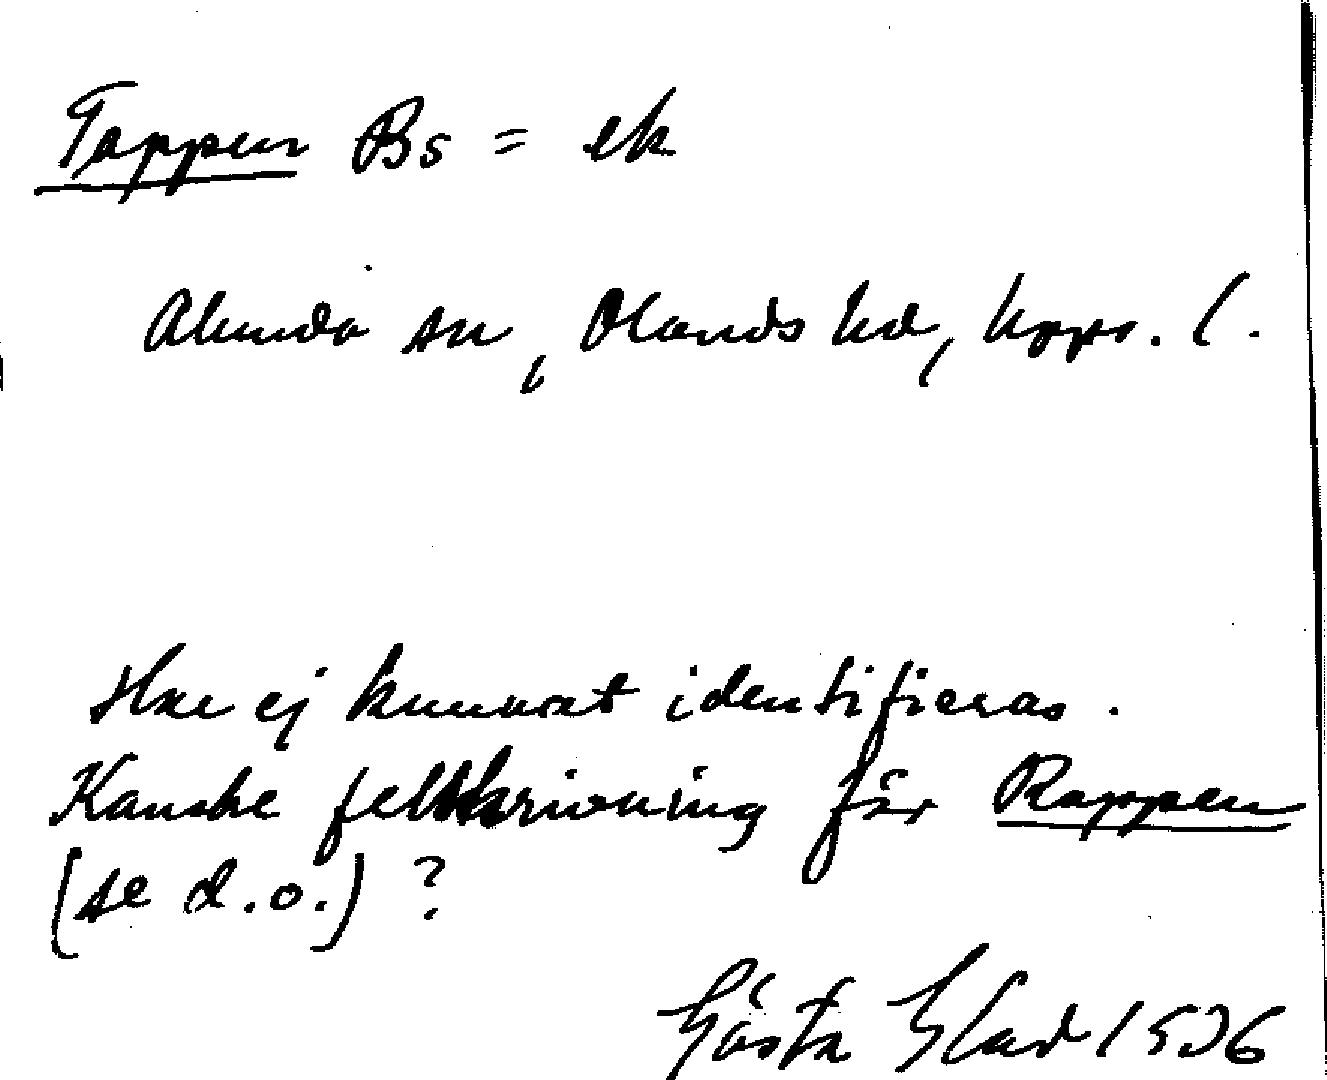 Tappen Bs = ek
Alunda sn, Olands hd, Upps. l.
Har ej kunnat identifieras.
Kanske felskrivning för Rappen
(se d.o.) ?
Gösta 1936